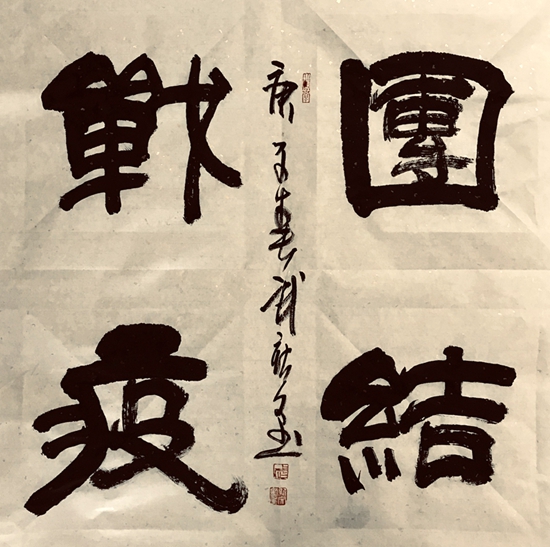 團結
戰疫
庚子春